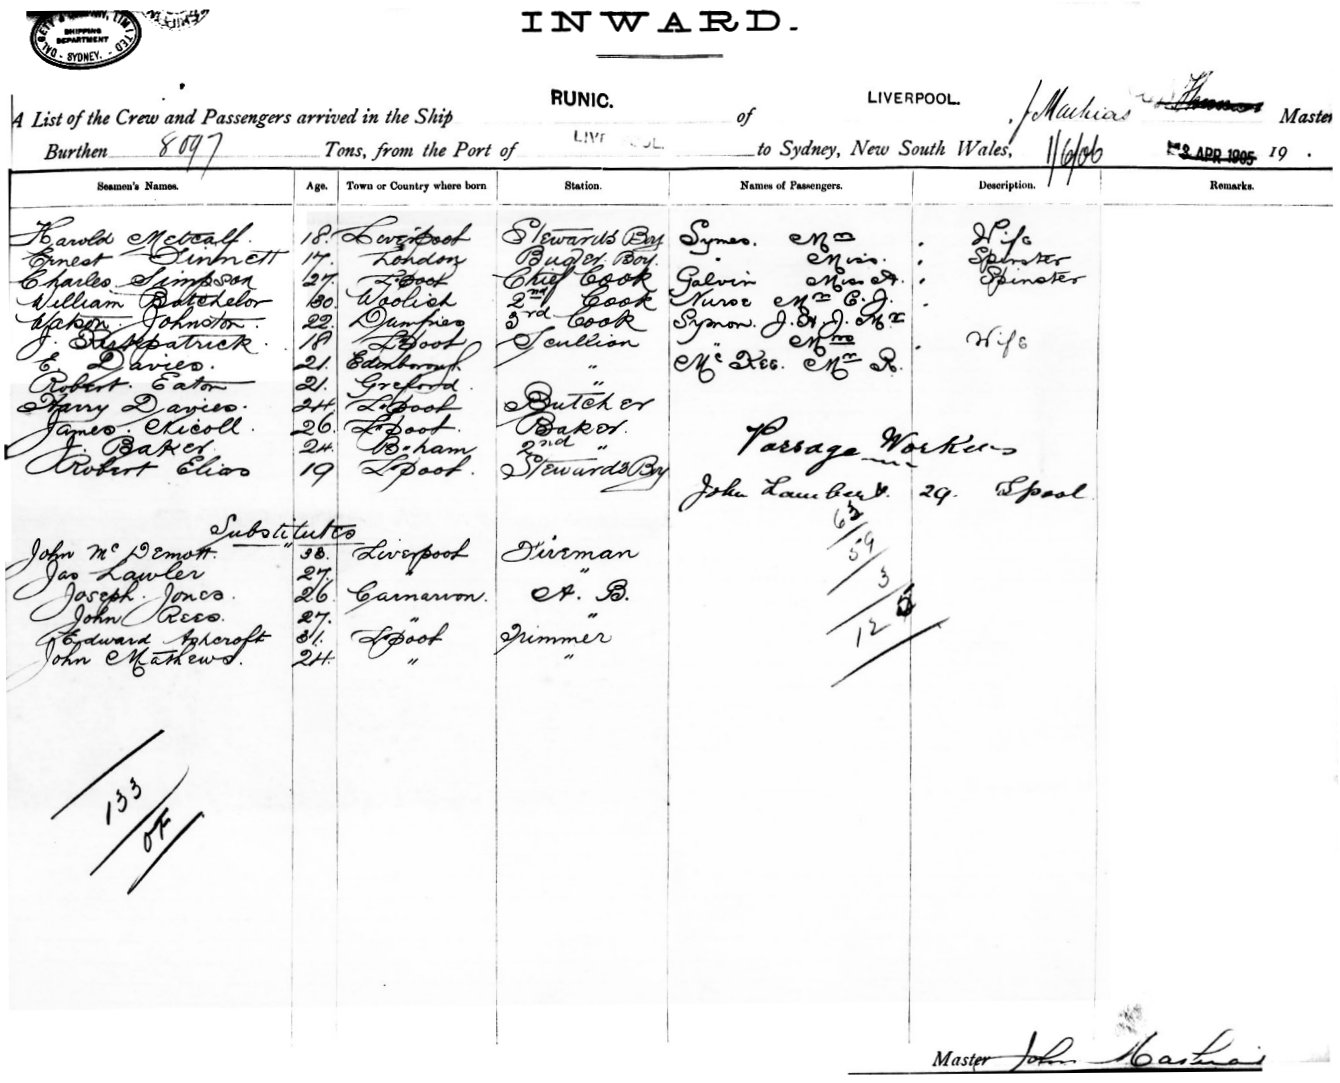 DALGETY & COMPANY, LIMITED
SHIPPING DEPARTMENT
SYDNEY.
INWARD.
A List of the Crew and Passengers arrived in the Ship RUNIC. of LIVERPOOL. J Mathias Master
Burthen 8097 Tons, from the Port of LIVERPOOL to Sydney, New South Wales, 1/6/06 3 APR 1905 19 .
Seamen's Names. Age. Town or Country where born Station. Names of Passengers. Description. Remarks.
Harold Metcalf. 18. Liverpool Stewards Boy Symes. Mrs . Wife
Ernest Dinnett 17. London Buger Boy. " Miss. . Spinster
Charles Simpson 27. L'pool Chief Cook Galvin Miss A. . Spinster
William Batchelor 30. Woolich 2nd Cook Nurse Mr E. J. .
Johnston. 22. Dumfries 3rd Cook Symon. J. H. J. Mr
J. Kirkpatrick. 18 L'pool Scullion " Mrs . Wife
E. Davies. 21. Edenborough " Mc Kee. Mr R.
Robert Eaton 21. Greford. "
Harry Davies. 24. L'pool Butcher
James Nicoll. 26. L'pool. Baker.
J. Baker. 24. B.ham 2nd "
Robert Elias 19 L'pool. Stewards Boy
Passage Workers
John Lambert. 29. L'pool
Substitutes
John Mc Demott. 38. Liverpool Fireman
Jas Lawler 27. " "
Joseph Jones. 26. Carnarvon. A. B.
John Rees. 27. " "
Edward Ashcroft 31. L'pool Trimmer
John Mathews. 24. " "
63
59
3
125
133
Master John Mathias